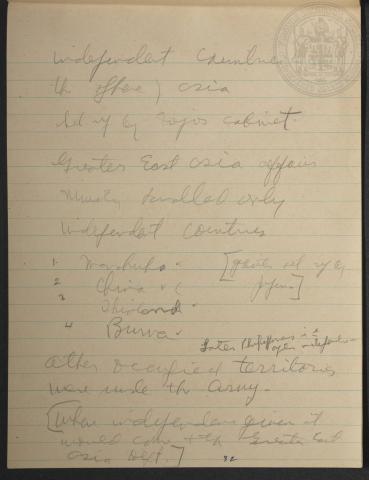 independent countries
the sphere) asia
set up by Tojo's cabinet.
Greater East asia affairs
Ministry handled only
independent countries
1. Manchuko
2 China
3 Thailand
4 Burma
[ set up by
]
Later
other occupied territories
were under the Army.
[When independence given it
would come to the Greater East
asia Dept.]
32